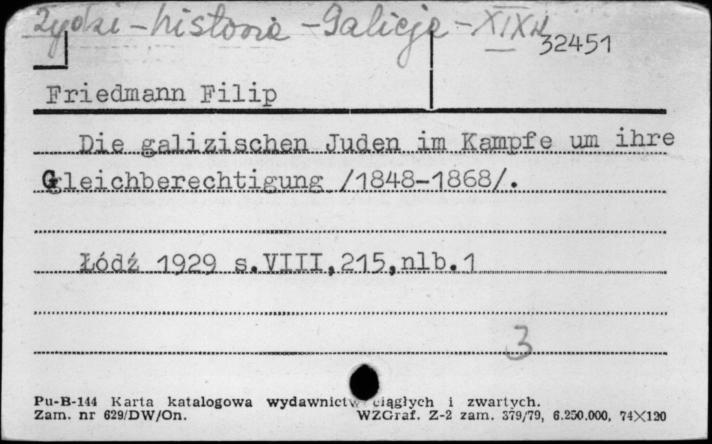 Żydzi – historia – Galicja – XIX w
32451
Friedmann Filip
Die galizischen Juden im Kampfe um ihre
Gleichberechtigung /1848-1868/.
Łódź 1929 s.VIII,215,nlb.1
3
Pu-B-144 Karta katalogowa wydawnictw ciągłych i zwartych.
Zam. nr 629/DW/On. WZGraf. Z-2 zam. 379/79, 6.250.000, 74×120